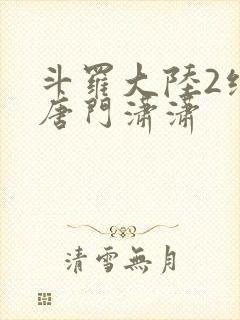 斗羅大陸2
唐門瀟瀟
清雪無月